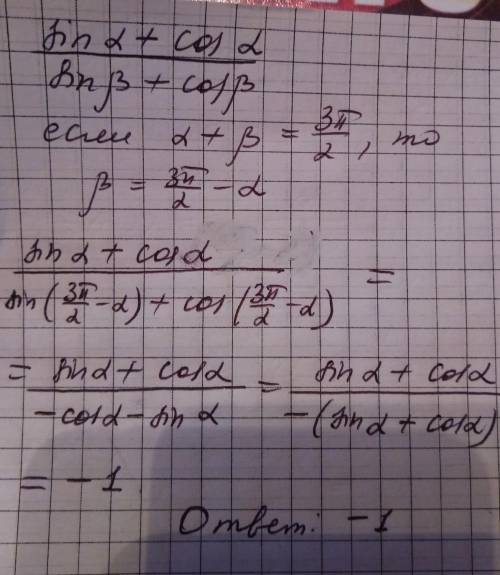 sin α + cos α
sin β + cos β
если α + β = 3π/2, то
β = 3π/2 - α
sin α + cos α
sin(3π/2 - α) + cos(3π/2 - α) =
= sin α + cos α / -cos α - sin α = sin α + cos α / -(sin α + cos α)
= -1
Ответ: -1